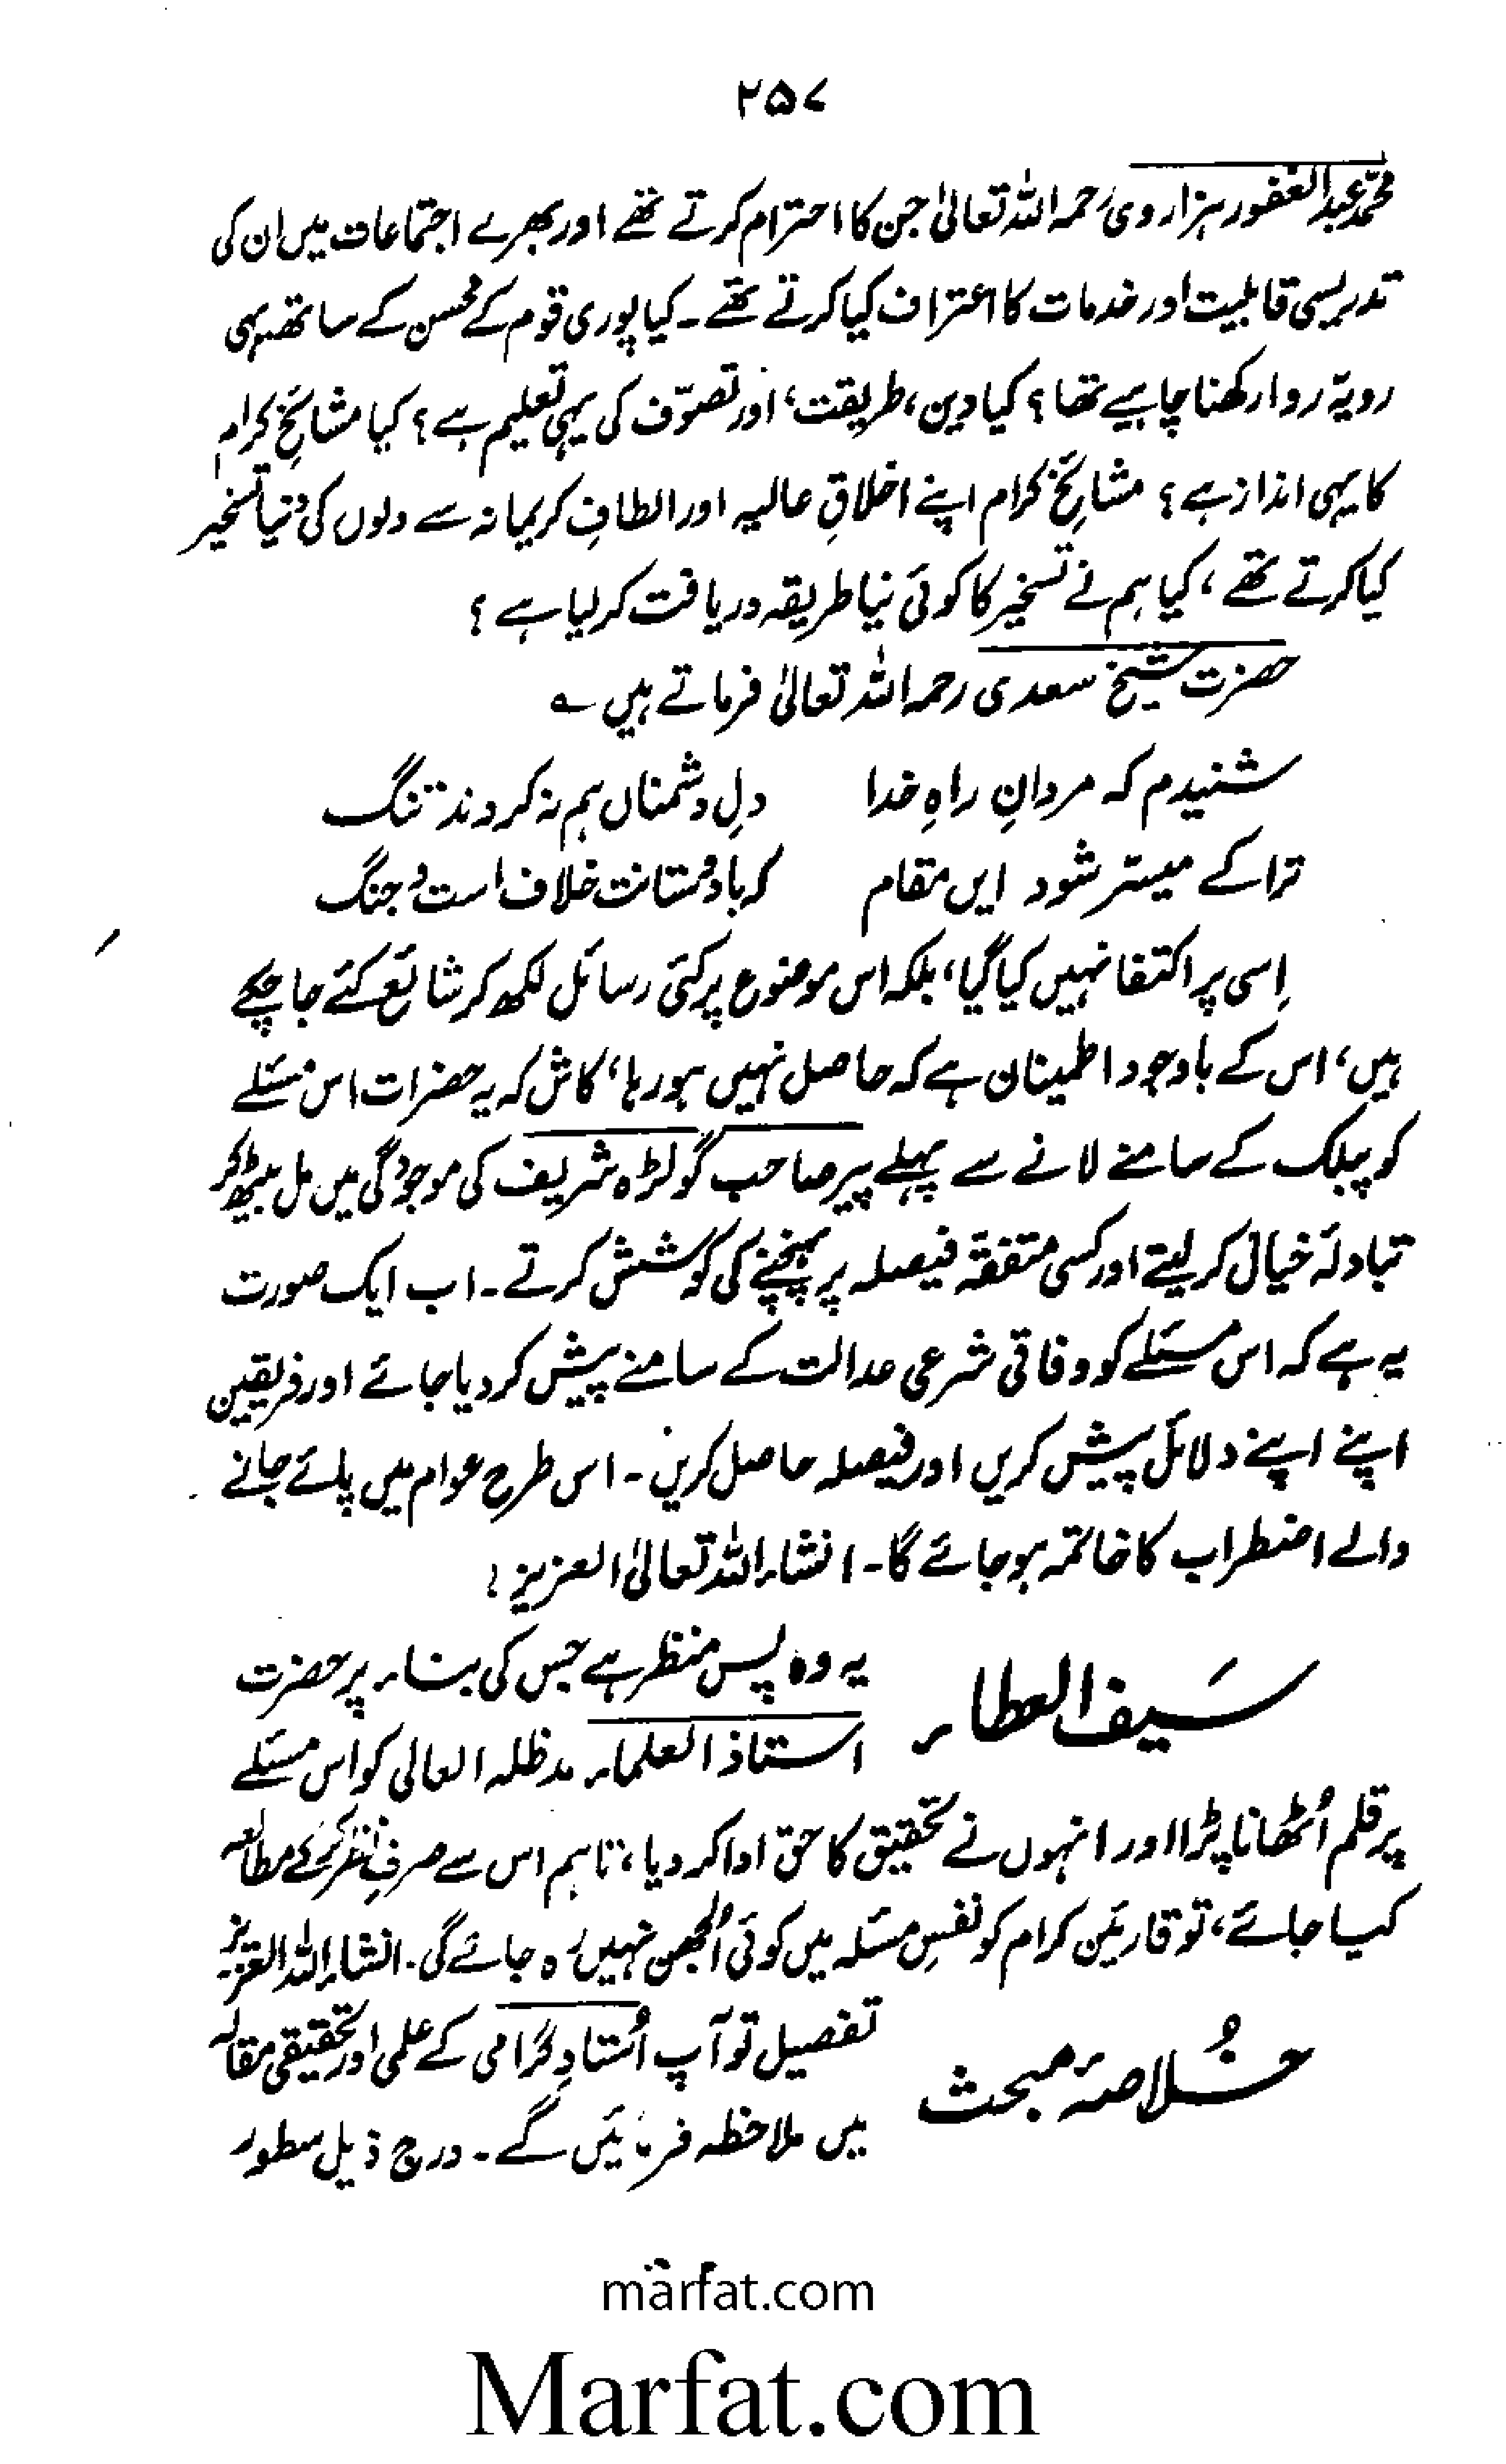 ۲۵۷
محمد عبدالغفور ہزاروی رحمہ اللہ تعالیٰ جن کا احترام کرتے تھے اور بھرے اجتماعات میں ان کی
تدریسی قابلیت اور خدمات کا اعتراف کیا کرتے تھے۔ کیا پوری قوم کے محسن کے ساتھ یہی
رویہّ روا رکھنا چاہیے تھا؟ کیا دین، طریقت، اور تصوّف کی یہی تعلیم ہے؟ کیا مشائخِ کرام
کا یہی انداز ہے؟ مشائخِ کرام اپنے اخلاقِ عالیہ اور الطافِ کریمانہ سے دلوں کی دُنیا تسخیر
کیا کرتے تھے، کیا ہم نے تسخیر کا کوئی نیا طریقہ دریافت کر لیا ہے؟
حضرت شیخ سعدی رحمہ اللہ تعالیٰ فرماتے ہیں ؎
شنیدم کہ مردانِ راہِ خدا دلِ دشمناں ہم نہ کردند تنگ
ترا کے میسّر شود ایں مقام کہ با دوستانت خلاف است و جنگ
اِسی پر اکتفا نہیں کیا گیا، بلکہ اس موضوع پر کئی رسائل لکھ کر شائع کئے جا چکے
ہیں، اس کے باوجود اطمینان ہے کہ حاصل نہیں ہو رہا، کاش کہ یہ حضرات اس مسئلے
کو پبلک کے سامنے لانے سے پہلے پیر صاحب گولڑہ شریف کی موجودگی میں مل بیٹھ کر
تبادلۂ خیال کر لیتے اور کسی متفقہ فیصلہ پر پہنچنے کی کوشش کرتے۔ اب ایک صورت
یہ ہے کہ اس مسئلے کو وفاقی شرعی عدالت کے سامنے پیش کر دیا جائے اور فریقین
اپنے اپنے دلائل پیش کریں اور فیصلہ حاصل کریں۔ اس طرح عوام میں پائے جانے
والے اضطراب کا خاتمہ ہو جائے گا۔ انشاء اللہ تعالیٰ العزیز!
سَیف العطاء یہ وہ پس منظر ہے جس کی بناء پر حضرت
استاذ العلماء مدظلہ العالی کو اس مسئلے
پر قلم اُٹھانا پڑا اور انہوں نے تحقیق کا حق ادا کر دیا، تاہم اس سے صرفِ نظر کر کے مطالعہ
کیا جائے، تو قارئین کرام کو نفسِ مسئلہ میں کوئی اُلجھن نہیں رہ جائے گی۔ انشاء اللہ العزیز
خُلاصۂ مبحث تفصیل تو آپ اُستاد گرامی کے علمی اور تحقیقی مقالہ
میں ملاحظہ فرمائیں گے۔ درج ذیل سطور
marfat.com
Marfat.com